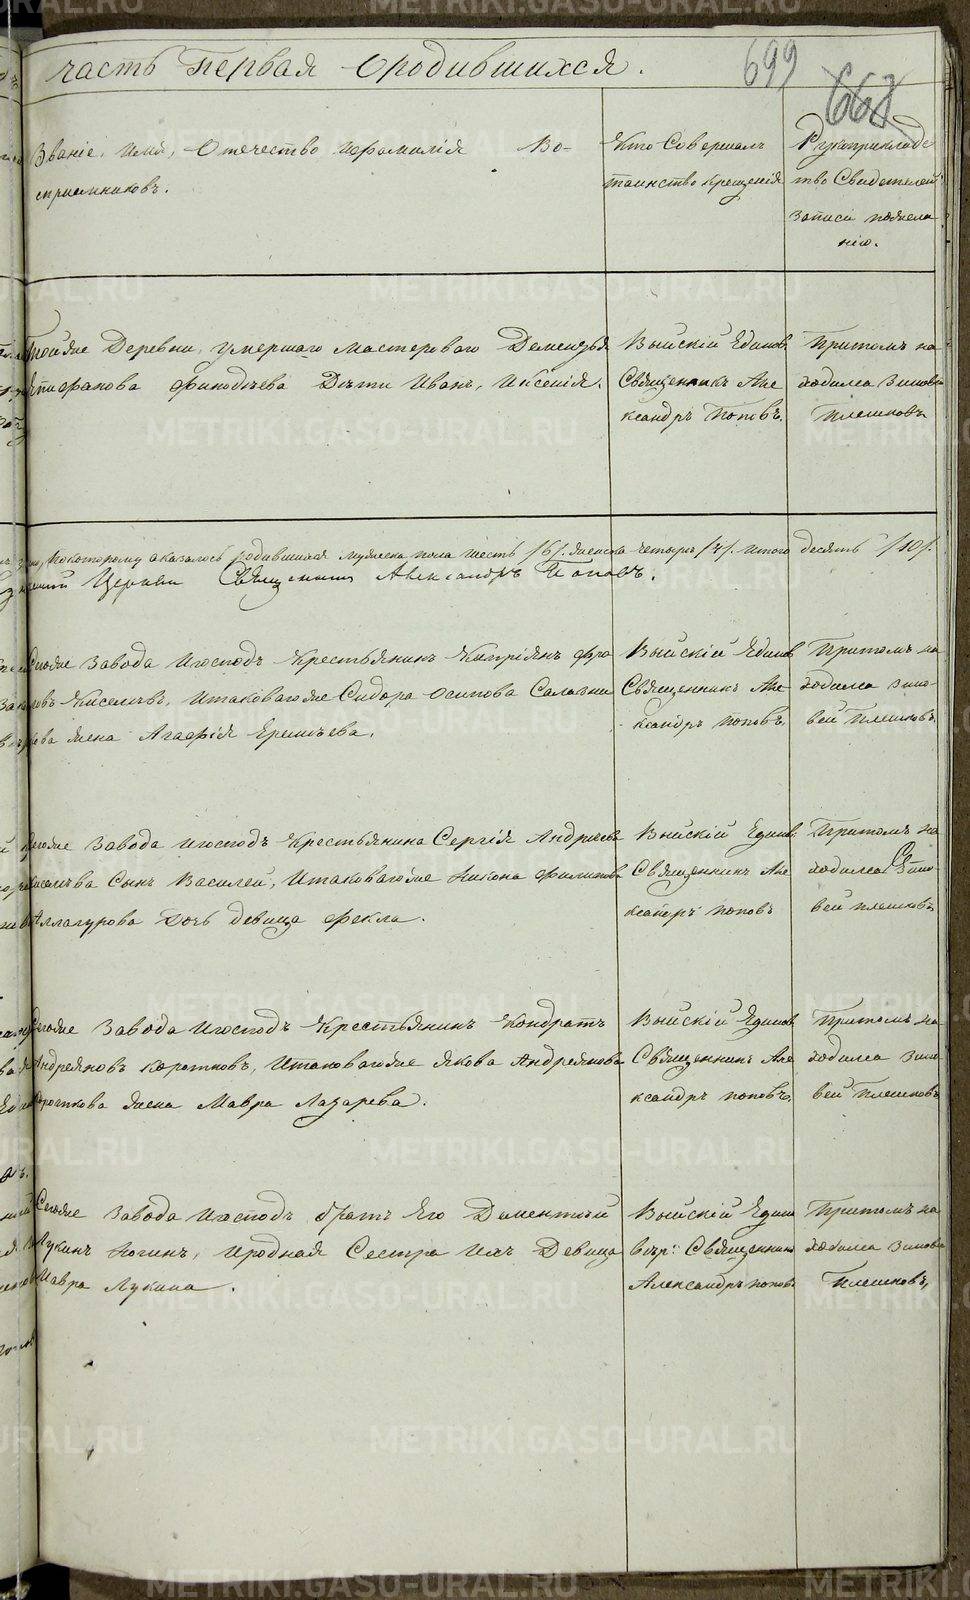 часть Первая о родившихся.
699
668
Званіе, имя, Отечество и фамилія Во-
сприемниковъ.
Кто Совершалъ
таинство крещенія
Рукоприкладс
тво Свидетелей
записи по желa-
нію.
Тойже Деревни, умершаго мастероваго Дементья
Епифанова Дѣти Иванъ, и Ксенія.
Выйскій Единов
Священникъ Але
ксандръ Поповъ.
Притомъ на
ходился Зиновей
Плешковъ
по которому оказалось родившихся мужеска пола шесть /6/. женска четыре /4/. итого десять /10/.
Церкви Священникъ Александръ Поповъ.
Сегоже Завода Господъ Крестьянинъ Кипріянъ Фро
ловъ Киселевъ, и таковагоже Сидора Осипова
жена Агафія Еремѣева.
Выйскій Единов
Священникъ Але
ксандръ поповъ.
Притомъ на
ходился Зино-
вей Плешковъ.
Сегоже Завода Господъ Крестьянина Сергія Андреева
Киселева Сынъ Василей, и таковагоже Никона Филипова
дочь девица Фекла.
Выйскій Единов
Священникъ Але
ксандръ поповъ
Притомъ на
ходился Зино-
вей плешковъ
Сегоже Завода Господъ Крестьянинъ Кондратъ
Андреяновъ Коротковъ, и таковагоже Якова Андреянова
Короткова жена Мавра Лазарева.
Выйскій Единов
Священникъ Але
ксандръ поповъ.
Притомъ на
ходился Зино-
вей Плешковъ
Сегоже Завода Господъ братъ Его Дементий
Лукинъ и родная Сестра ихъ Девица
Мавра Лукина.
Выйскій Едино
вѣр: Священникъ
Александръ поповъ
Притомъ на
ходился Зиновей
Плешковъ,
METRIKI.GASO-URAL.RU